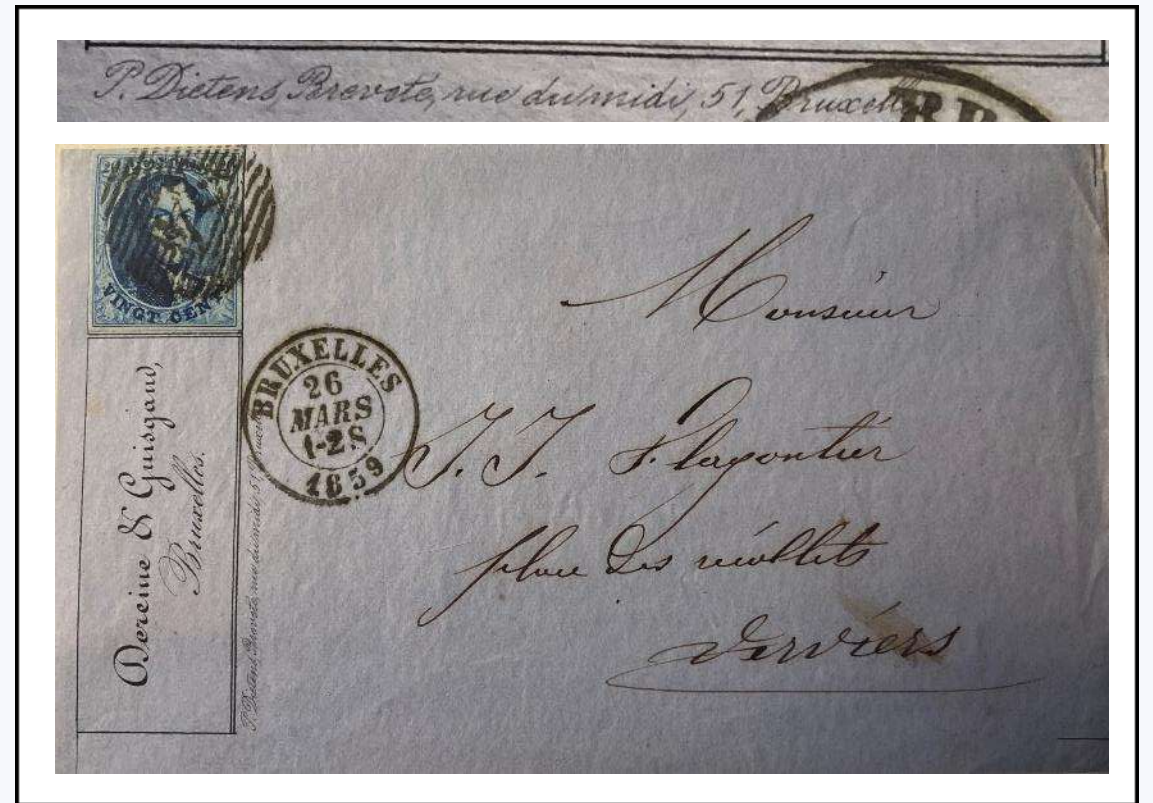 P. Dietens Breveté, rue du midi, 51, Bruxelles
VINGT CENT
Dereine & Guisgand,
Bruxelles.
P. Dietens Breveté, rue du midi, 51, Bruxelles
BRUXELLES
26
MARS
1-2S
1859
Monsieur
J. J.
place des
Verviers